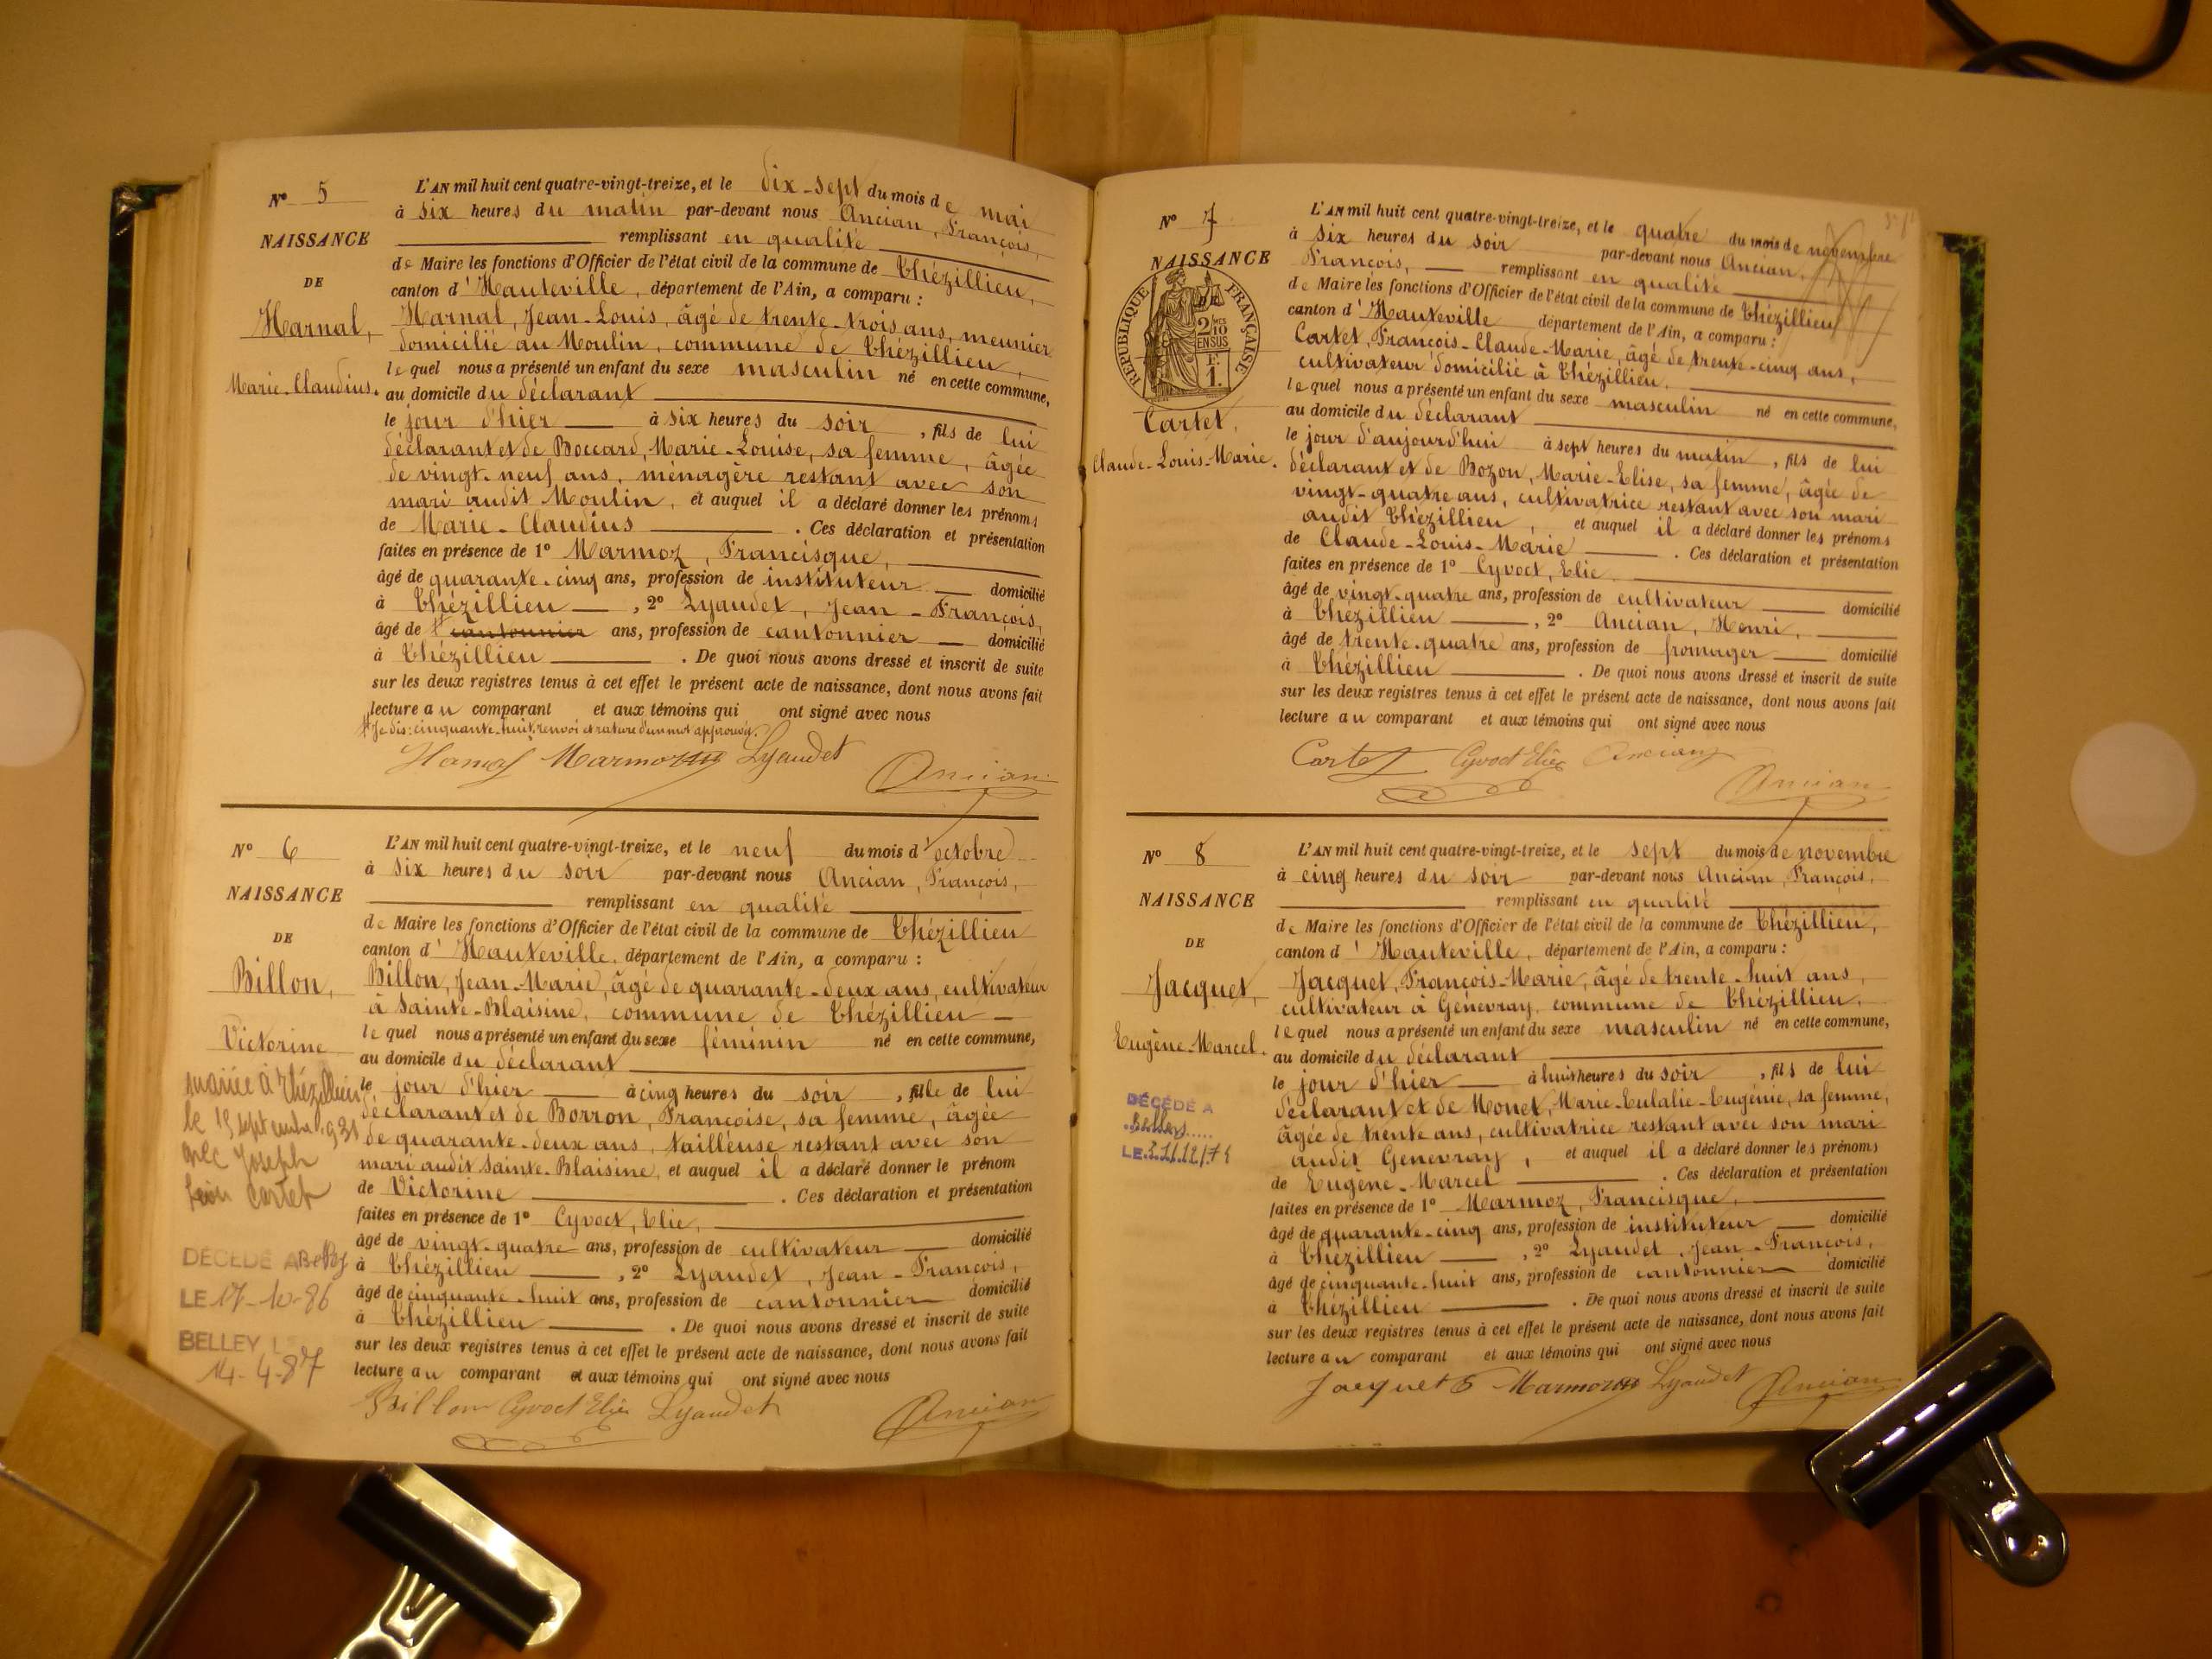 N° 5
NAISSANCE
DE
Harnal,
Marie-Claudius.
L'AN mil huit cent quatre-vingt-treize, et le dix-sept du mois de mai
à six heures du matin par-devant nous Ancian, François,
remplissant en qualité
de Maire les fonctions d'Officier de l'état civil de la commune de Thézillieu,
canton d'Hauteville, département de l'Ain, a comparu :
Harnal, Jean-Louis, âgé de trente-trois ans, meunier
domicilié au Moulin, commune de Thézillieu,
lequel nous a présenté un enfant du sexe masculin né en cette commune,
au domicile du déclarant
le jour d'hier à six heures du soir, fils de lui
déclarant et de Boccard, Marie-Louise, sa femme, âgée
de vingt-neuf ans, ménagère restant avec son
mari audit Moulin, et auquel il a déclaré donner les prénoms
de Marie-Claudius. Ces déclaration et présentation
faites en présence de 1° Marmoz, Francisque,
âgé de quarante-cinq ans, profession de instituteur domicilié
à Thézillieu, 2° Lyaudet, Jean-François,
âgé de cantonnier ans, profession de cantonnier domicilié
à Thézillieu. De quoi nous avons dressé et inscrit de suite
sur les deux registres tenus à cet effet le présent acte de naissance, dont nous avons fait
lecture au comparant et aux témoins qui ont signé avec nous
Je dis: cinquante-huit, renvoi et rature d'un mot approuvés.
Harnal Marmoz Lyaudet Ancian
N° 6
NAISSANCE
DE
Billon,
Victorine
mariée à Thézillieu
le 15 septembre 1931
avec Joseph
Cartet
DÉCÉDÉ A Belley
LE 17-10-86
BELLEY L
14-4-87
L'AN mil huit cent quatre-vingt-treize, et le neuf du mois d'octobre
à six heures du soir par-devant nous Ancian, François,
remplissant en qualité
de Maire les fonctions d'Officier de l'état civil de la commune de Thézillieu
canton d'Hauteville, département de l'Ain, a comparu :
Billon, Jean-Marie, âgé de quarante-deux ans, cultivateur
à Sainte-Blaisine, commune de Thézillieu
lequel nous a présenté un enfant du sexe féminin né en cette commune,
au domicile du déclarant
le jour d'hier à cinq heures du soir, fille de lui
déclarant et de Borron, Françoise, sa femme, âgée
de quarante-deux ans, tailleuse restant avec son
mari audit Sainte-Blaisine, et auquel il a déclaré donner le prénom
de Victorine. Ces déclaration et présentation
faites en présence de 1° Cyvoct, Elie,
âgé de vingt-quatre ans, profession de cultivateur domicilié
à Thézillieu, 2° Lyaudet, Jean-François,
âgé de cinquante-huit ans, profession de cantonnier domicilié
à Thézillieu. De quoi nous avons dressé et inscrit de suite
sur les deux registres tenus à cet effet le présent acte de naissance, dont nous avons fait
lecture au comparant et aux témoins qui ont signé avec nous
Billon Cyvoct Elie Lyaudet Ancian
N° 7
NAISSANCE
RÉPUBLIQUE FRANÇAISE
2/10 EN SUS
F. 1.
Cartet,
Claude-Louis-Marie.
L'AN mil huit cent quatre-vingt-treize, et le quatre du mois de novembre
à six heures du soir par-devant nous Ancian,
François, remplissant en qualité
de Maire les fonctions d'Officier de l'état civil de la commune de Thézillieu
canton d'Hauteville département de l'Ain, a comparu :
Cartet, François-Claude-Marie, âgé de trente-cinq ans,
cultivateur domicilié à Thézillieu,
lequel nous a présenté un enfant du sexe masculin né en cette commune,
au domicile du déclarant
le jour d'aujourd'hui à sept heures du matin, fils de lui
déclarant et de Bozon, Marie-Elise, sa femme, âgée de
vingt-quatre ans, cultivatrice restant avec son mari
audit Thézillieu, et auquel il a déclaré donner les prénoms
de Claude-Louis-Marie. Ces déclaration et présentation
faites en présence de 1° Cyvoct, Elie
âgé de vingt-quatre ans, profession de cultivateur domicilié
à Thézillieu, 2° Ancian, Henri,
âgé de trente-quatre ans, profession de fromager domicilié
à Thézillieu. De quoi nous avons dressé et inscrit de suite
sur les deux registres tenus à cet effet le présent acte de naissance, dont nous avons fait
lecture au comparant et aux témoins qui ont signé avec nous
Cartet Cyvoct Elie Ancian Ancian
N° 8
NAISSANCE
DE
Jacquet,
Eugène-Marcel.
DÉCÉDÉ A
Belley
LE
L'AN mil huit cent quatre-vingt-treize, et le sept du mois de novembre
à cinq heures du soir par-devant nous Ancian, François,
remplissant en qualité
de Maire les fonctions d'Officier de l'état civil de la commune de Thézillieu,
canton d'Hauteville, département de l'Ain, a comparu :
Jacquet, François-Marie, âgé de trente-huit ans,
cultivateur à Genevray, commune de Thézillieu,
lequel nous a présenté un enfant du sexe masculin né en cette commune,
au domicile du déclarant
le jour d'hier à huit heures du soir, fils de lui
déclarant et de Monet, Marie-Eulalie-Eugénie, sa femme,
âgée de trente ans, cultivatrice restant avec son mari
audit Genevray, et auquel il a déclaré donner les prénoms
de Eugène-Marcel. Ces déclaration et présentation
faites en présence de 1° Marmoz, Francisque,
âgé de quarante-cinq ans, profession de instituteur domicilié
à Thézillieu, 2° Lyaudet, Jean-François,
âgé de cinquante-huit ans, profession de cantonnier domicilié
à Thézillieu. De quoi nous avons dressé et inscrit de suite
sur les deux registres tenus à cet effet le présent acte de naissance, dont nous avons fait
lecture au comparant et aux témoins qui ont signé avec nous
Jacquet Marmoz Lyaudet Ancian